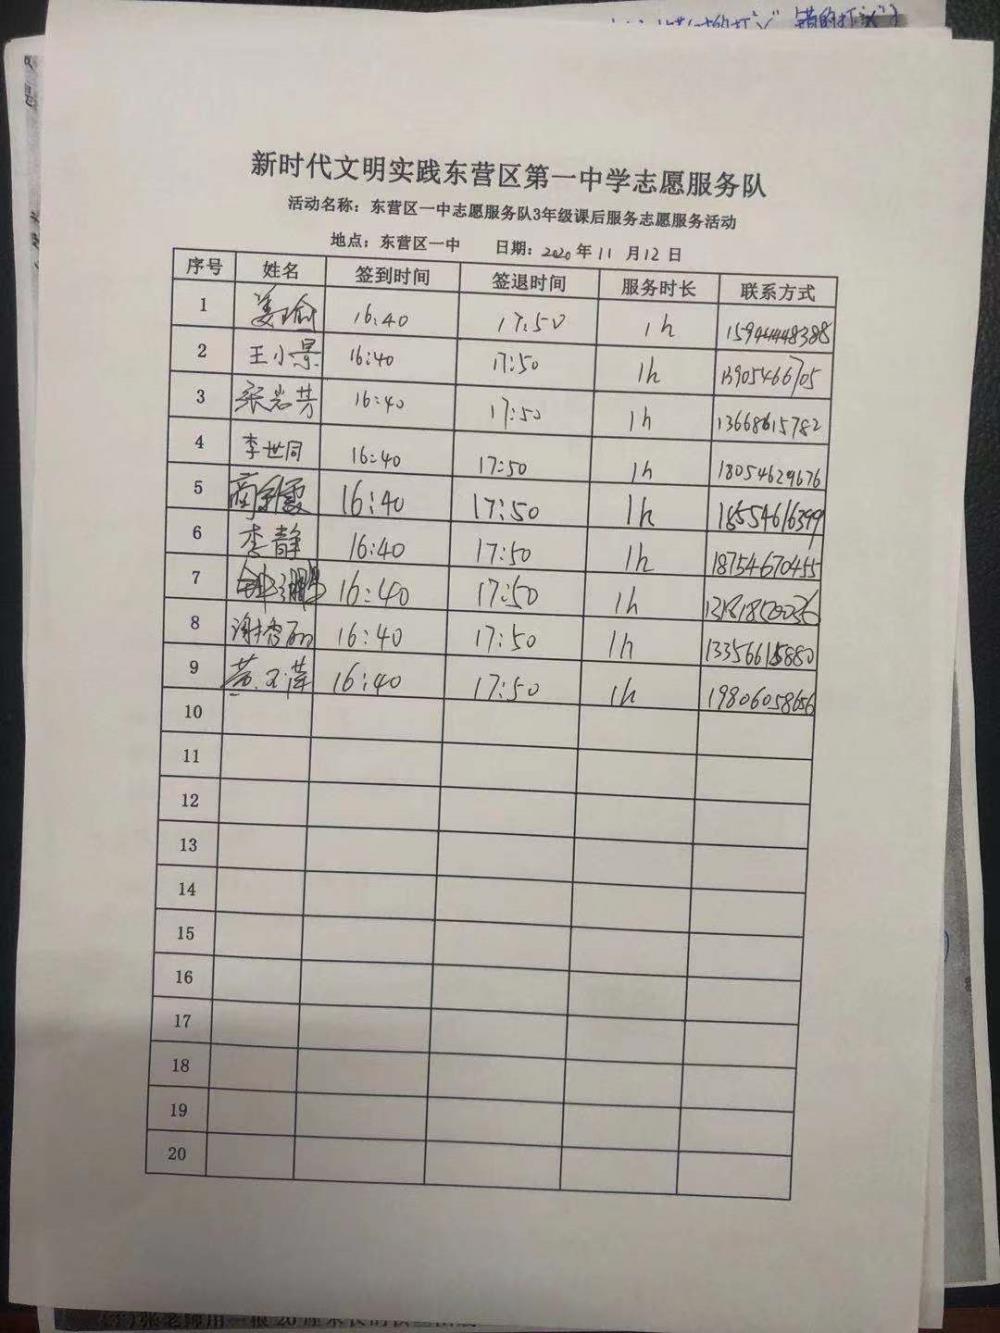 错的打"×"
新时代文明实践东营区第一中学志愿服务队
活动名称：东营区一中志愿服务队3年级课后服务志愿服务活动
地点：东营区一中 日期：2020年11月12日
序号 姓名 签到时间 签退时间 服务时长 联系方式
1 姜瑜 16:40 17:50 1h 15944448388
2 王小景 16:40 17:50 1h 13905466705
3 张岩芳 16:40 17:50 1h 13668615782
4 李世同 16:40 17:50 1h 18054629676
5 16:40 17:50 1h 18554616399
6 李静 16:40 17:50 1h 18754670455
7 16:40 17:50 1h
8 16:40 17:50 1h 13356615880
9 16:40 17:50 1h 19806058656
10
11
12
13
14
15
16
17
18
19
20